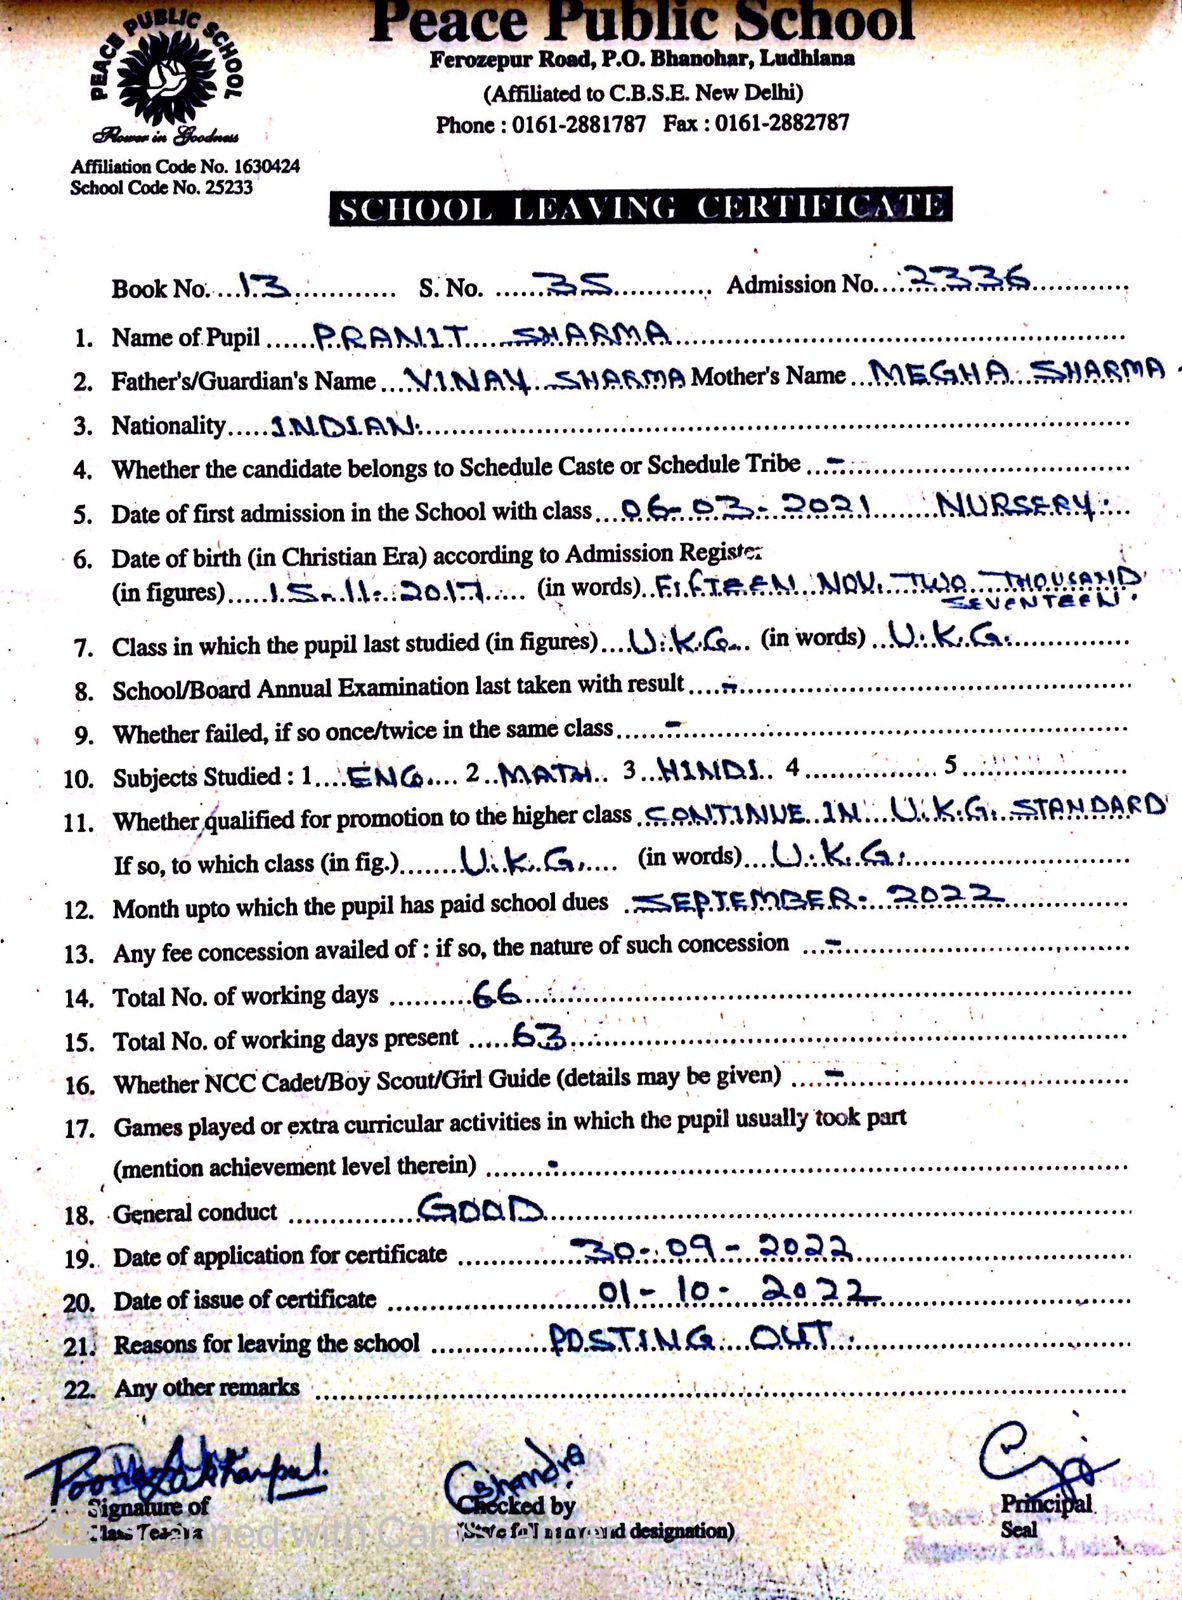 PEACE PUBLIC SCHOOL
Flower in Goodness
Affiliation Code No. 1630424
School Code No. 25233
Peace Public School
Ferozepur Road, P.O. Bhanohar, Ludhiana
(Affiliated to C.B.S.E. New Delhi)
Phone : 0161-2881787 Fax : 0161-2882787
SCHOOL LEAVING CERTIFICATE
Book No. 13 S. No. 35 Admission No. 2336
1. Name of Pupil PRANIT SHARMA
2. Father's/Guardian's Name VINAY SHARMA Mother's Name MEGHA SHARMA
3. Nationality INDIAN.
4. Whether the candidate belongs to Schedule Caste or Schedule Tribe -
5. Date of first admission in the School with class 06-03-2021 NURSERY.
6. Date of birth (in Christian Era) according to Admission Register
(in figures) 15-11-2017 (in words) FIFTEEN NOV. TWO THOUSAND
SEVENTEEN.
7. Class in which the pupil last studied (in figures) U.K.G. (in words) U.K.G.
8. School/Board Annual Examination last taken with result -
9. Whether failed, if so once/twice in the same class -
10. Subjects Studied : 1 ENG 2 MATH 3 HINDI 4 5
11. Whether qualified for promotion to the higher class CONTINUE IN U.K.G. STANDARD
If so, to which class (in fig.) U.K.G. (in words) U.K.G.
12. Month upto which the pupil has paid school dues SEPTEMBER. 2022
13. Any fee concession availed of : if so, the nature of such concession -
14. Total No. of working days 66
15. Total No. of working days present 63
16. Whether NCC Cadet/Boy Scout/Girl Guide (details may be given) -
17. Games played or extra curricular activities in which the pupil usually took part
(mention achievement level therein) -
18. General conduct GOOD
19. Date of application for certificate 30-09-2022
20. Date of issue of certificate 01-10-2022
21. Reasons for leaving the school POSTING OUT.
22. Any other remarks
Signature of
Class Teacher
Checked by
(State full name and designation)
Principal
Seal